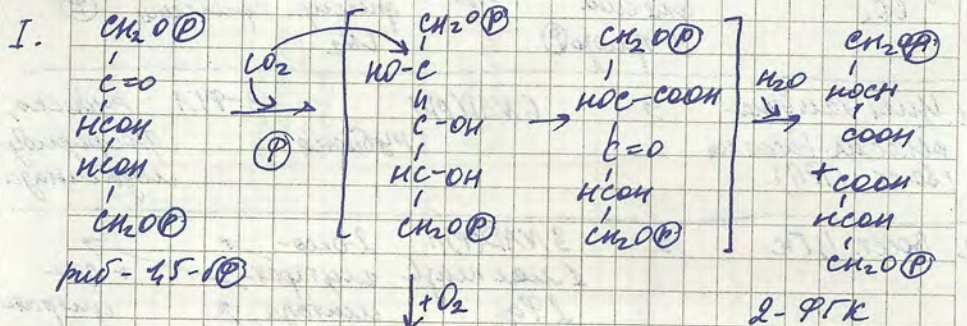 I.
CH₂OⓅ
C=O
HCOH
HCOH
CH₂OⓅ
риб-1,5-бⓅ
CO₂
Ⓟ
CH₂OⓅ
HO-C
C-OH
HC-OH
CH₂OⓅ
↓+O₂
CH₂OⓅ
HOC-COOH
C=O
HCOH
CH₂OⓅ
H₂O
CH₂OⓅ
HOCH
COOH
+COOH
HCOH
CH₂OⓅ
2-ФГК